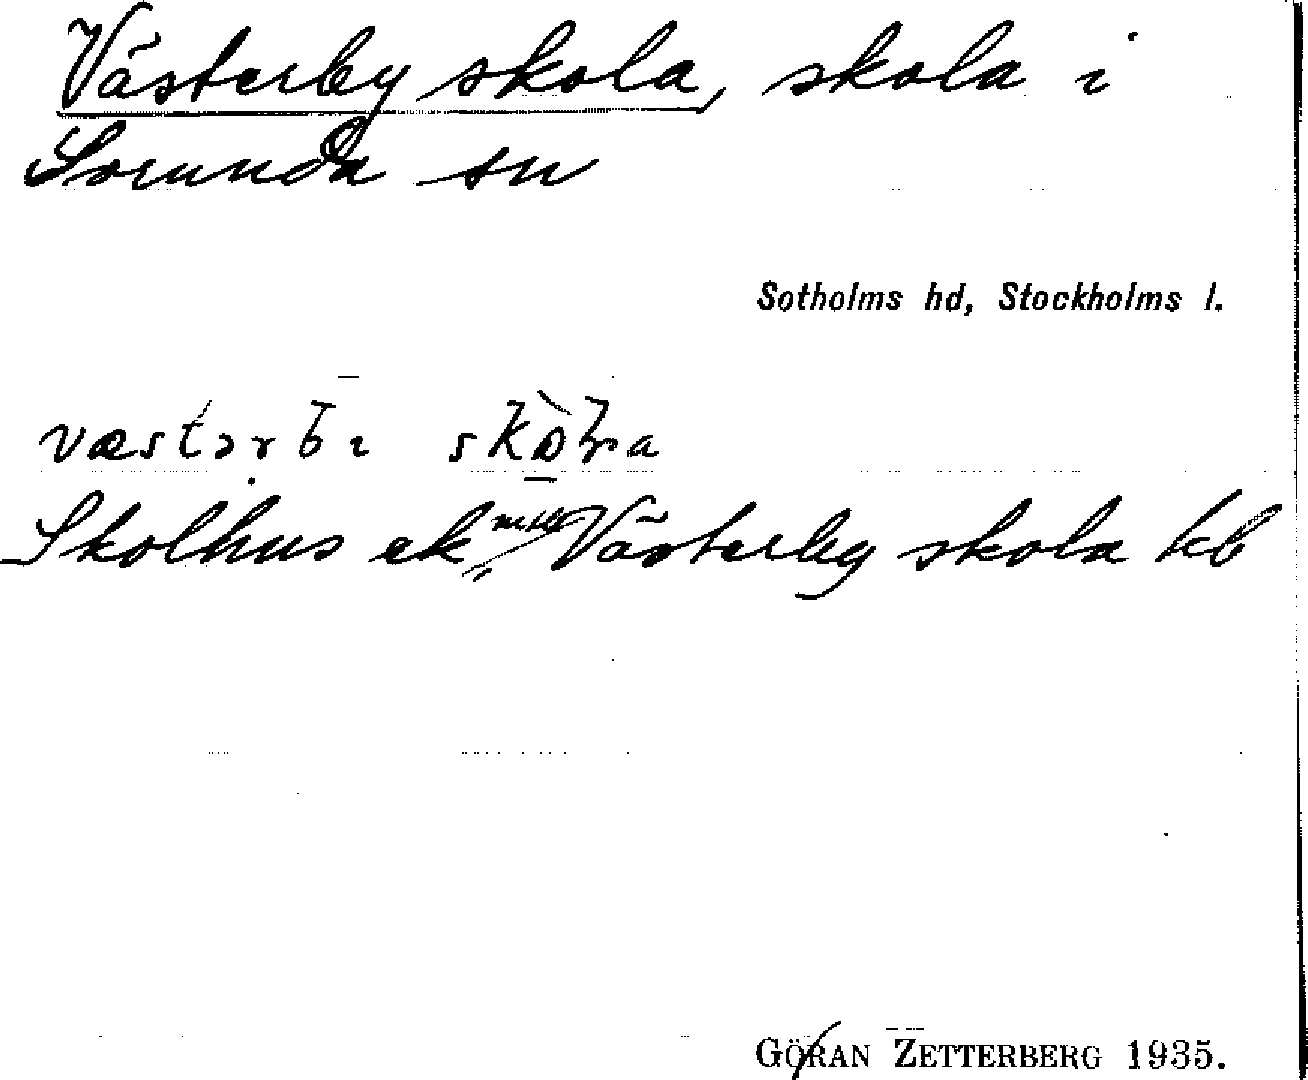 Västerby skola, skola i
Sorunda sn
Sotholms hd, Stockholms l.
Skolhus ek Västerby skola kb
GÖRAN ZETTERBERG 1935.